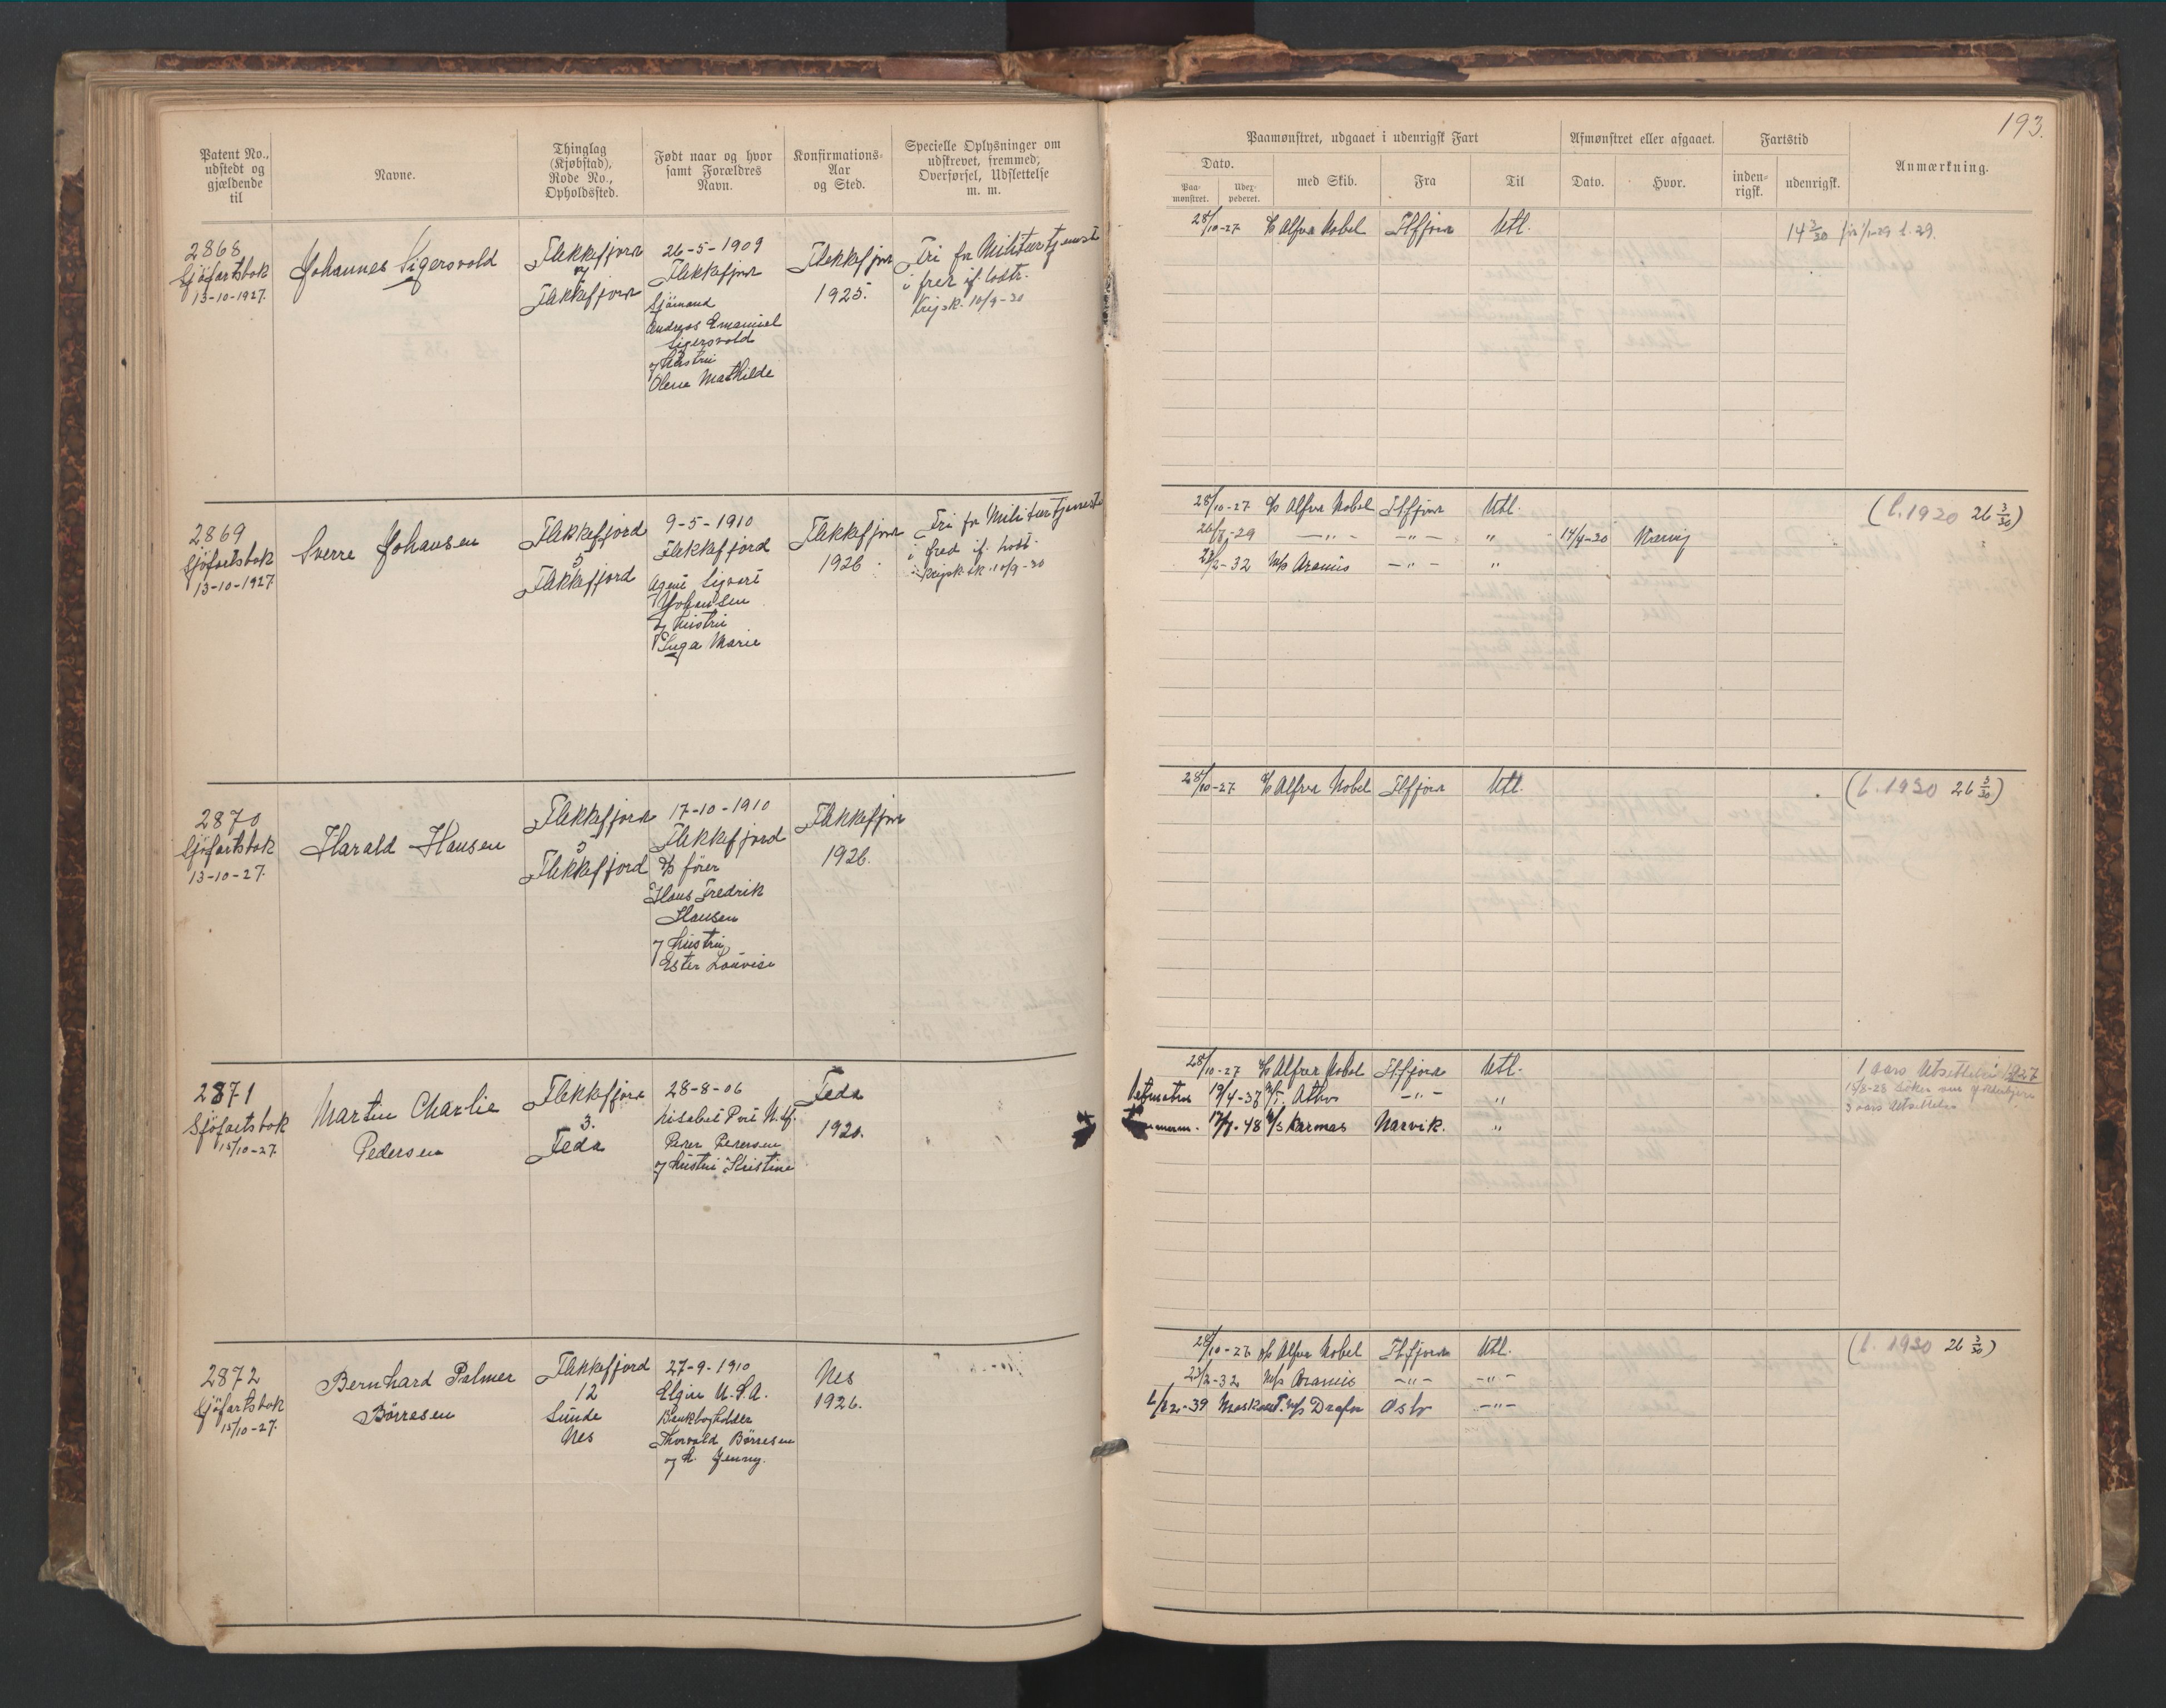 193.
Patent No., udstedt og gjældende til
Navne.
Thinglag (Kjøbstad), Rode No., Opholdssted.
Født naar og hvor samt Forældres Navn.
Konfirmations-Aar og Sted.
Specielle Oplysninger om udskrevet, fremmed, Overførsel, Udslettelse m. m.
Paamønstret, udgaaet i udenrigsk Fart
Dato.
Paa-mønstret.
Udex-pederet.
med Skib.
Fra
Til
Afmønstret eller afgaaet.
Dato.
Hvor.
Fartstid
inden-rigsk.
udenrigsk.
Anmærkning.
2868
Sjöfartsbok
13-10-1927.
Johannes Sigersvold
Flekkefjord
Flekkefjord
26-5-1909
Flekkefjord
Sjömand
Andreas Emanuel
Sigersvold
og Hustru
Olena Mathilde
Flekkefjord
1925.
Fri for Militærtjeneste
i fred if.
Krigsk. 10/9-30
28/10-27 D/s Alfred Nobel Flfjord Utl.
14 3/30
2869
Sjöfartsbok
13-10-1927
Sverre Johansen
Flekkefjord
5
Flekkefjord
9-5-1910
Flekkefjord
Sigvart
Johansen
og Hustru
Inga Marie
Flekkefjord
1926.
Fri for Militærtjeneste
i fred if.
Krigsk. 10/9-30
28/10-27 D/s Alfred Nobel Flfjord Utl.
26/8-29 —"— —"— " 14/4-30
23/2-32 M/s Aramis —"— "
(l. 1930 26 3/30)
2870
Sjöfartsbok
13-10-27.
Harald Hansen
Flekkefjord
5
Flekkefjord
17-10-1910
Flekkefjord
D/s förer
Hans Fredrik
Hansen
og Hustru
Ester Lovise
Flekkefjord
1926.
28/10-27 D/s Alfred Nobel Flfjord Utl.
(l. 1930 26 3/30)
2871
Sjöfartsbok
15/10-27.
Martin Charlie
Pedersen
Flekkefjord
3.
Feda
28-8-06
Peder Pedersen
og Hustru Kristine
Feda
1920.
28/10-27 D/s Alfred Nobel Flfjord Utl.
19/4-37 M/T. Athos —"— "
17/9-48 M/s Karmas Narvik. "
1 aars Utsettelse 1927
15/8-28
3 aars Utsettelse
2872
Sjöfartsbok
15/10-27.
Bernhard Palmer
Börresen
Flekkefjord
12
Sunde
Nes
27-9-1910
Elgin U.S.A.
Bankbogholder
Thorvald Börresen
og h. Jenny.
Nes
1926.
28/10-26 D/s Alfred Nobel Flfjord Utl.
23/2-32 M/s Aramis —"— —"—
6/12-39 M/s Oslo —"—
(l. 1930 26 3/30)